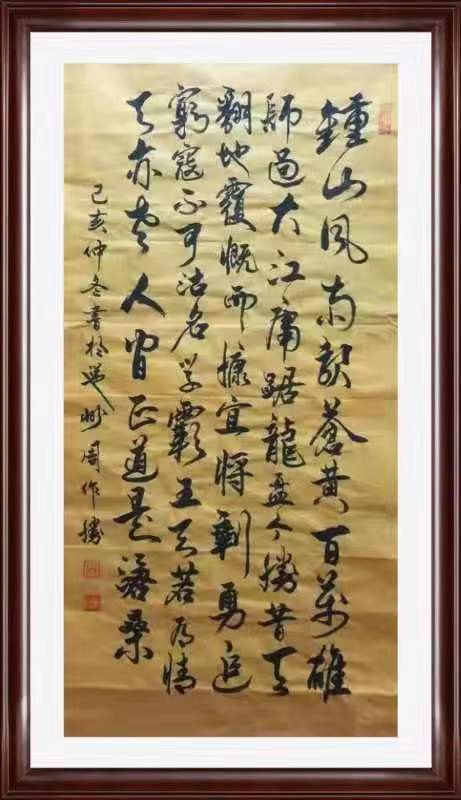 鐘山風雨起蒼黃百萬雄
師過大江虎踞龍盤今勝昔天
翻地覆慨而慷宜將剩勇追
窮寇不可沽名學霸王天若有情
天亦老人間正道是滄桑
己亥仲冬書於州周作勝